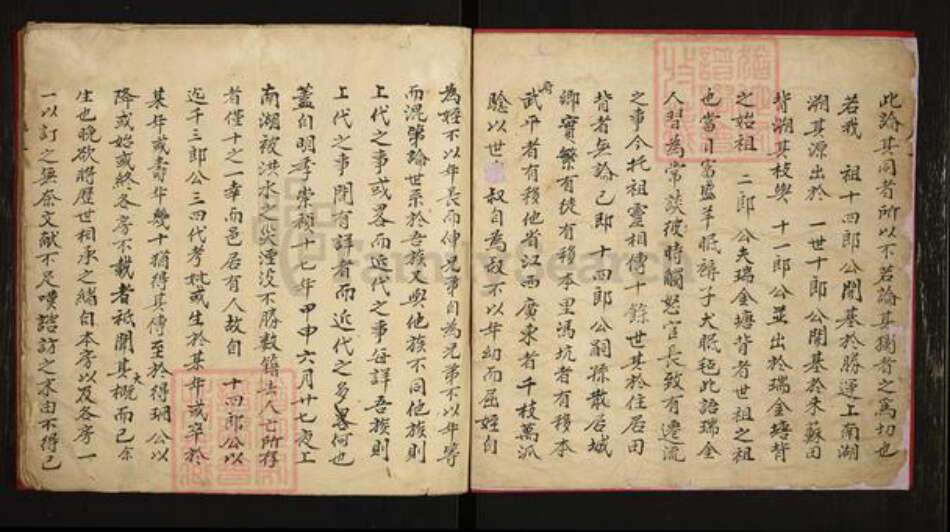 此論其同者所以不若論其獨者之為切也
若我 祖十四郎公開基於勝運上南湖
溯其源出於 一世十郎公開基於來蘇田
背溯其枝與 十一郎公並出於瑞金塘背
之始祖 二郎公夫瑞金塘背者世祖之祖
也當日富盛羊眠褥子犬眠毡此語瑞金
人習為常談彼時觸怒官長致有遷流
之事今托祖靈相傳十餘世其於住居田
背者無論已即十四郎公嗣孫散居城
鄉實繁有徒有移本里馮坑者有移本
府武平者有移他省江西廣東者千枝萬派
以世 叔自為叔不以年幼而屈姪自
為姪不以年長而伸兄弟自為兄弟不以年等
而混第論世系於吾族又與他族不同他族則
上代之事或畧而近代之事每詳吾族則
上代之事間有詳者而近代之多畧何也
蓋自明季崇禎十七年甲申六月廿七夜上
南湖被洪水之災湮沒不勝數籍去人亡所存
者僅十之一幸而邑居有人故自 十四郎公以
迄千三郎公三四代考妣或生於某年或卒於
某年或壽年幾十猶得其傳至於得瑚公以
降或始或終各房不載者祗開其大概而已余
生也晚欲將歷世相承之緒自本房以及各房一
一以訂之無奈文獻不足嘆諮訪之末由不得已
FamilySearch